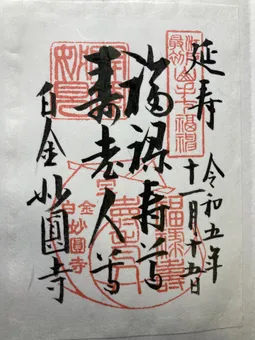 延寿
令和五年
十一月十五日
福禄寿尊
寿老人尊
白金妙圓寺
白金
妙圓寺